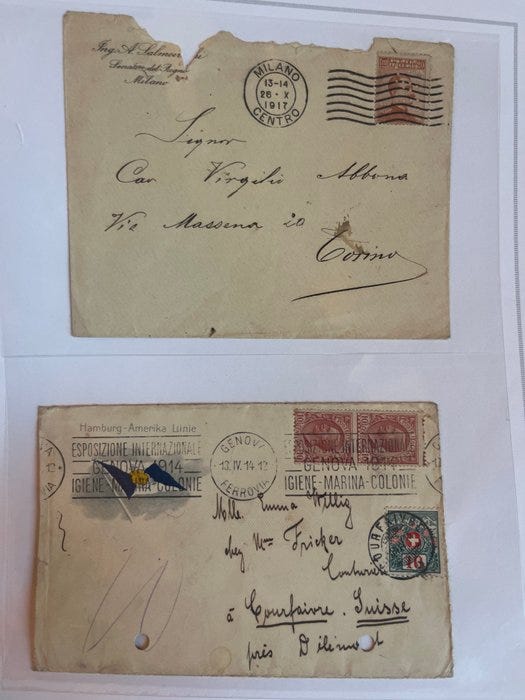 Ing. A. Salmoiraghi
Senatore del Regno
Milano
MILANO
13-14
26·X
1917
CENTRO
Signor
Cav Virgilio Abbona
Via Massena 20
Torino
Hamburg-Amerika Linie
ESPOSIZIONE INTERNAZIONALE
GENOVA 1914
IGIENE-MARINA-COLONIE
GENOVA
13.IV.14.12
FERROVIA
ESPOSIZIONE INTERNAZIONALE
GENOVA 1914
IGIENE-MARINA-COLONIE
Mlle. Emma Willig
chez Mme Fricker
Couturière
à Courfaivre. Suisse
près Delémont
COURFAIVRE
10